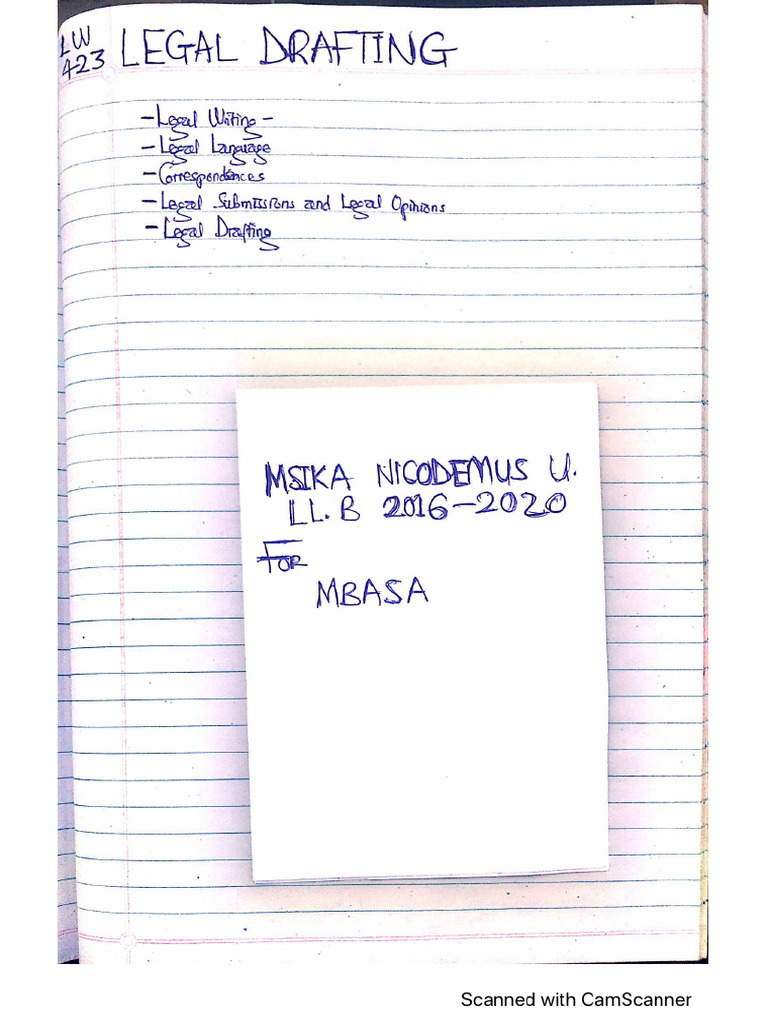 LW
423 LEGAL DRAFTING
- Legal Writing -
- Legal Language
- Correspondences
- Legal Submissions and Legal Opinions
- Legal Drafting
MSIKA NICODEMUS U.
LL.B 2016-2020
FOR
MBASA
Scanned with CamScanner